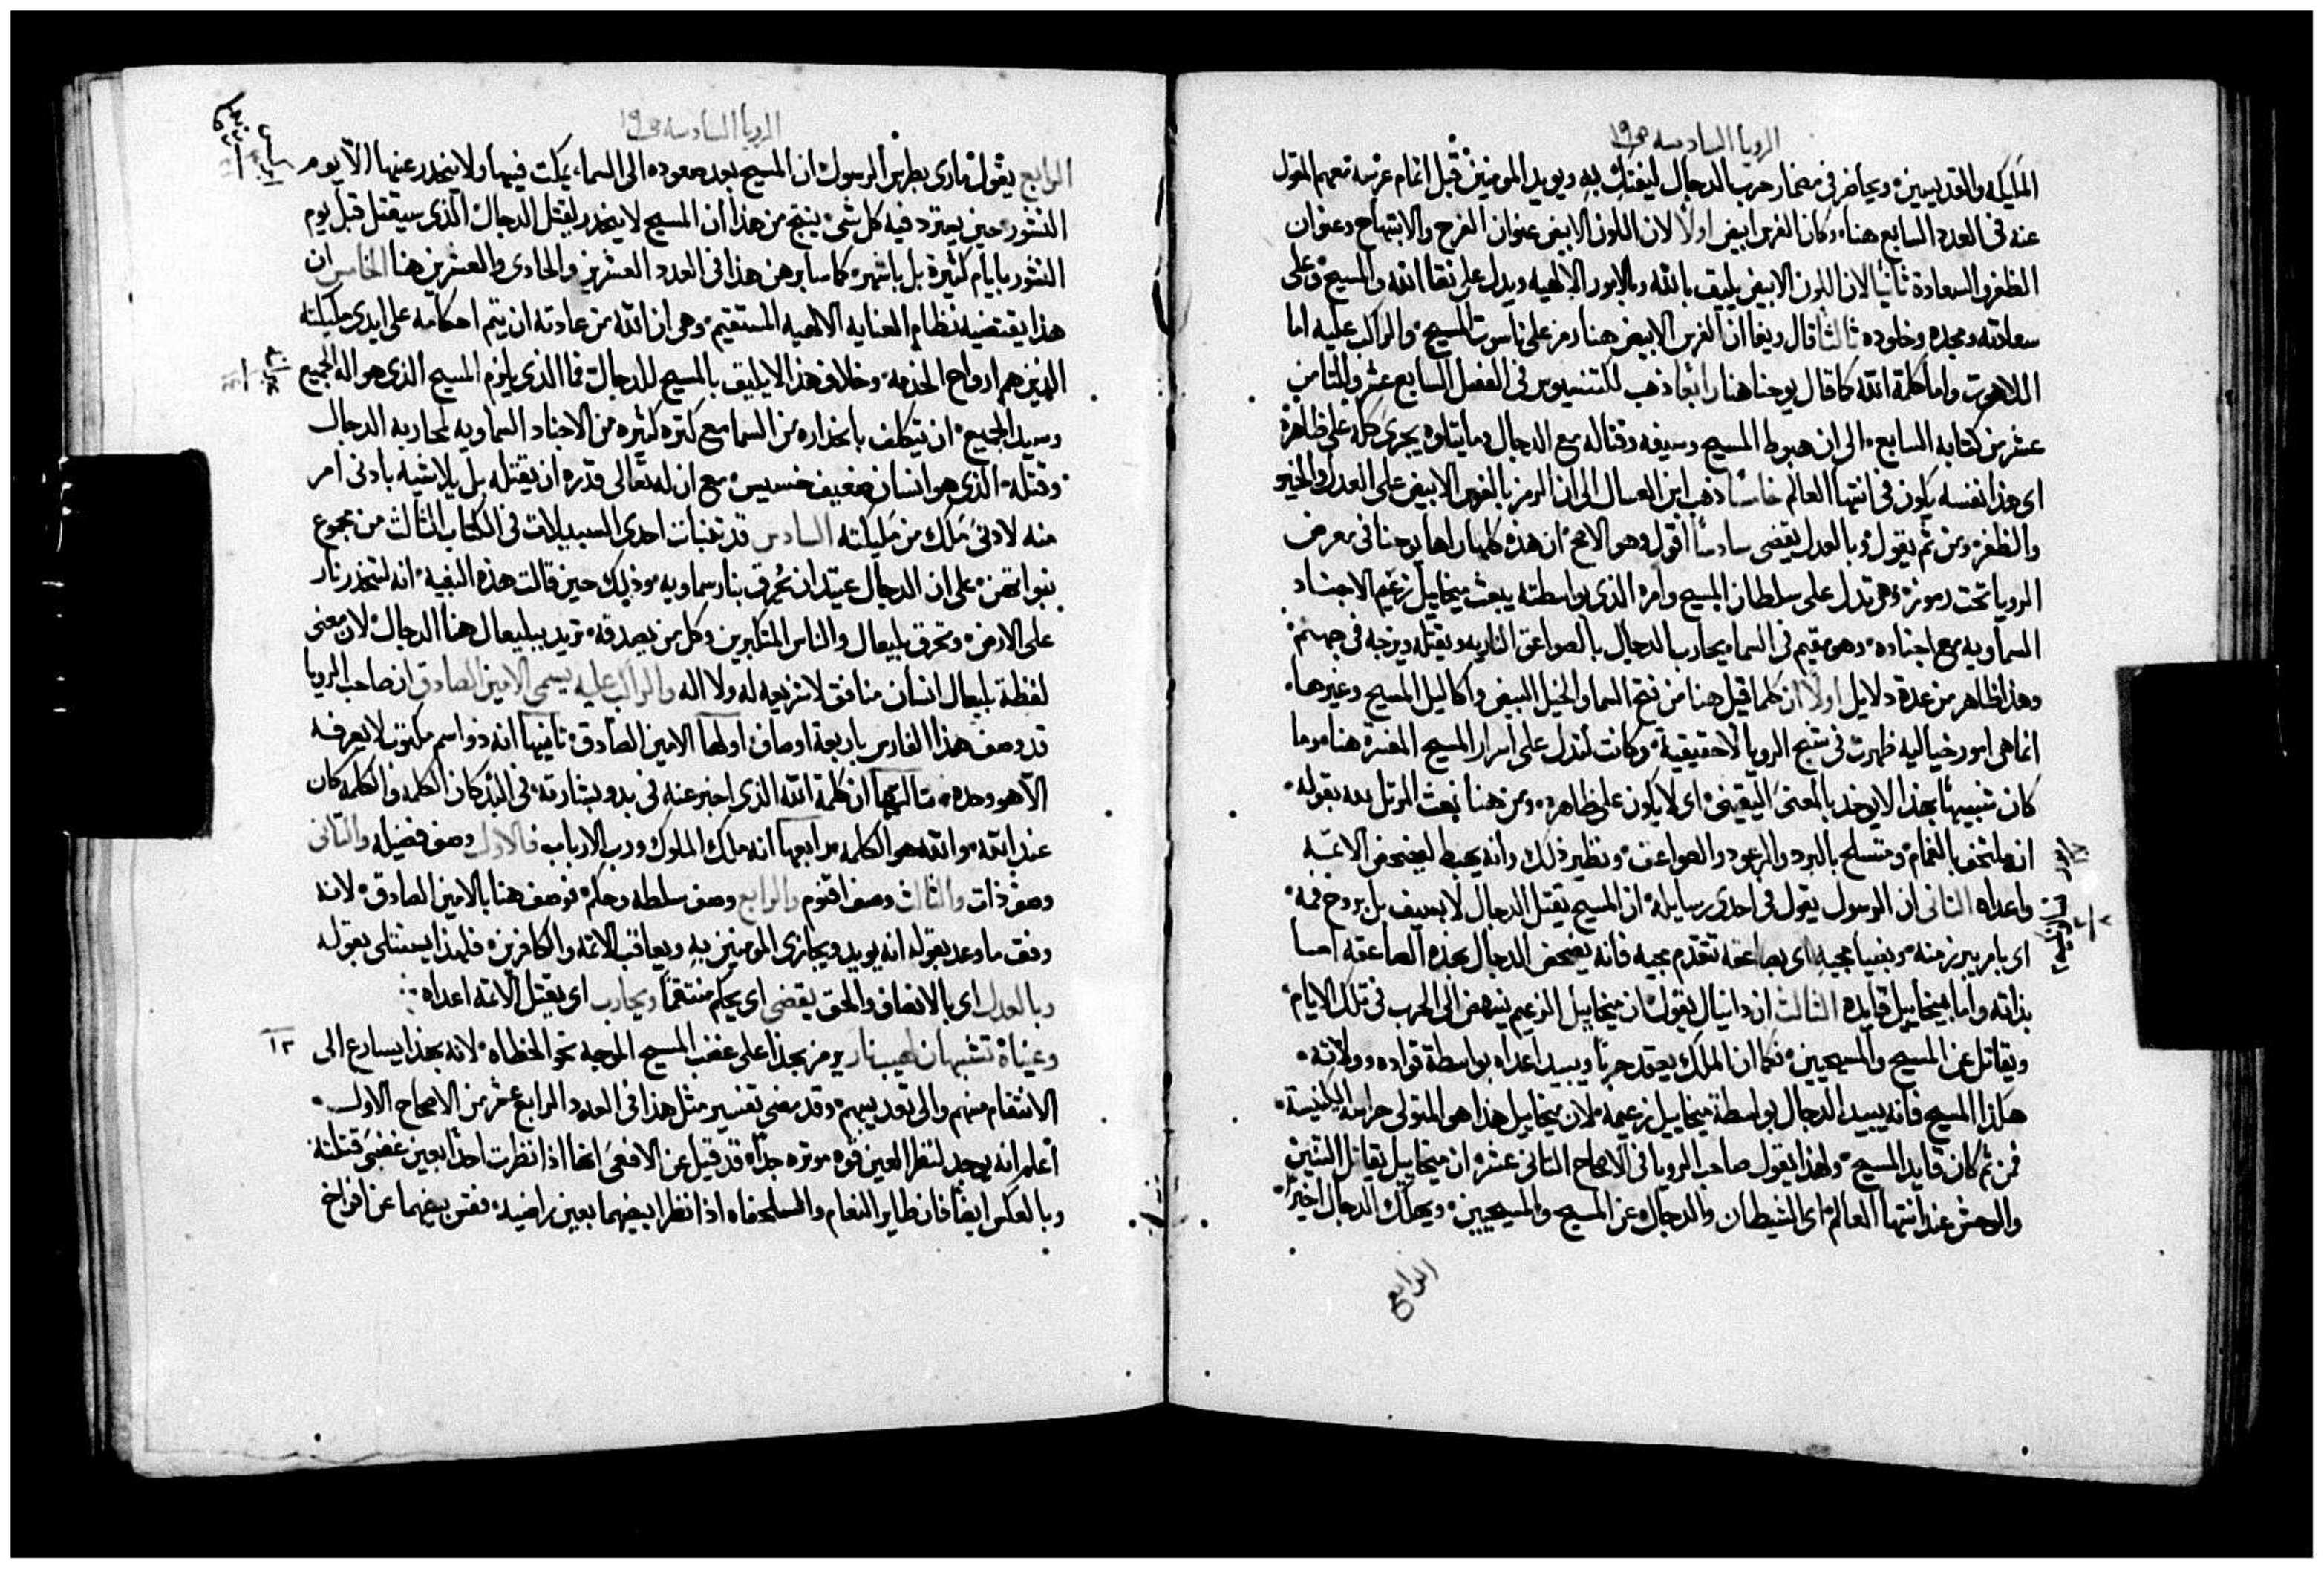 الرويا السادسه ص١٩
المليكه والقديسين ويحاضر في مضمار حرب الدجال ليفتك به ويويد المومنين قبل اتمام عرسه معهم المقول
عنه في العدد السابع هنا وكان الفرس ابيض اولًا لان اللون الابيض عنوان الفرح والابتهاج وعنوان
الظفر والسعادة ثانيًا لان اللون الابيض يليق بالله وبالامور الالهيه ويدل على نقا الله والمسيح وعلى
سعادته ومجده وخلوده ثالثًا قال ويغا ان الفرس الابيض هنا رمز على ناسوت المسيح والراكب عليه اما
اللاهوت واما كلمة الله كما قال يوحنا هنا رابعًا ذهب لكتنسيوس في الفصل السابع عشر والثامن
عشر من كتابه السابع الى ان هبوط المسيح وسيفه وقتاله مع الدجال وما يتلوه يجرى كله على ظاهره
اى هذا نفسه يكون في انتها العالم خامسًا ذهب ابن العسال الى ان الرمز بالفرس الابيض على العدل والخير
والظفر ومن ثم يقول وبالعدل يقضى سادسًا اقول وهو الاصح ان هذه كلها راها يوحنا في معرض
الرويا تحت رموز وهي تدل على سلطان المسيح وامره الذي بواسطته يبعث ميخاييل زعيم الاجناد
السماويه مع اجناده وهو مقيم في السما ويحارب الدجال بالصواعق الناريه ويقتله ويزجه في جهنم
وهذا ظاهر من عدة دلايل اولًا ان كلما قيل هنا من فتح السما والخيل البيض واكاليل المسيح وغيرها
انما هي امور خياليه ظهرت في شبح الرويا لا حقيقية وكانت تدل على اسرار المسيح المفسرة هنا وما
كان شبيهًا بهذا لا يوخذ بالمعنى اليقيني اى لا يكون على ظاهره ومن هنا نعت المرتل الله بقوله
انه ملتحف بالغمام ومتسلح بالبرد والرعود والصواعق ونظير ذلك وانه يهبط ليفحص الاثمه
واعداه الثاني ان الرسول يقول في احدى رسايله ان المسيح يقتل الدجال لا بسيف بل بروح فمه
اى بامر يبرز منه وبضيا مجيه اى بصاعقه تتقدم مجيه فانه يفحص الدجال بهذه الصاعقه اما
بذاته واما بميخاييل قايده الثالث ان دانيال يقول ان ميخاييل الزعيم ينهض الى الحرب في تلك الايام
ويقاتل عن المسيح والمسيحيين فكما ان الملك يعقد حربًا ويبيد اعداه بواسطة قواده وولاته
هكذا المسيح فانه يبيد الدجال بواسطة ميخاييل زعيمه لان ميخاييل هذا هو المتولى حراسة الكنيسة
فمن ثم كان قايد المسيح ولهذا يقول صاحب الرويا في الاصحاح الثاني عشر ان ميخاييل يقاتل التنين
والوحش عند انتها العالم اى الشيطان والدجال عن المسيح والمسيحيين ويهلك الدجال اخيرًا
الرابع
الرويا السادسه ص١٩
الرابع يقول مارى بطرس الرسول ان المسيح بعد صعوده الى السماء يمكث فيها ولا ينحدر عنها الا يوم
النشور حين يسترد فيه كل شي ينتج من هذا ان المسيح لا ينحدر ليقتل الدجال الذى سيقتل قبل يوم
النشور بايام كثيرة بل باشهره كما سابرهن هذا في العدد العشرين والحادى والعشرين هنا الخامس ان
هذا يقتضيه نظام العنايه الالهيه المستقيم وهي ان الله من عادته ان يتم احكامه على ايدى مليكته
الذين هم ارواح الخدمه وخلاف هذا لا يليق بالمسيح للدجال فما الذى يلزم المسيح الذى هو اله الجميع
وسيد الجميع ان يتكلف بانحداره من السما مع كثره كثيره من الاجناد السماويه لمحاربه الدجال
وقتله الذى هو انسان ضعيف خسيس مع ان له تعالى قدره ان يقتله بل يلاشيه بادنى امر
منه لادنى ملك من مليكته السادس قد تنبات احدى السبيلات في الكتاب الثالث من مجموع
نبواتهن على ان الدجال عتيد ان يُحرق بنار سماويه وذلك حين قالت هذه النبية انه لتنحدر نار
على الارض وتحرق بليعال والناس المتكبرين وكل من يصدقه تريد ببليعال هنا الدجال لان معنى
لفظة بليعال انسان منافق لا شريعه له ولا اله والراكب عليه يسمى الامين الصادق ان صاحب الرويا
قد وصف هذا الفارس باربعة اوصاف اولها الامين الصادق ثانيها انه ذو اسم مكتوب لا يعرفه
الا هو وحده ثالثها ان كلمة الله الذى اخبر عنه في بدو بشارته في البد كان الكلمه والكلمه كان
عند الله والله هو الكلمه رابعها انه ملك الملوك ورب الارباب فالاول وصف فضيله والثاني
وصف ذات والثالث وصف اقنوم والرابع وصف سلطه وحكم فوصف هنا بالامين الصادق لانه
وفق ما وعد بقوله انه يويد ويجازى المومنين به ويعاقب الاثمه والكافرين فلهذا يستتلى بقوله
وبالعدل اى بالانصاف والحق يقضى اى يحكم منتقمًا ويحارب اى يقتل الاثمه اعداه
وعيناه تشبهان لهيب نار يرمز بهذا على غضب المسيح الموجه نحو الخطاه لانه بهذا يسارع الى
١٢
الانتقام منهم والى تعذيبهم وقد مضى تفسير مثل هذا في العدد الرابع عشر من الاصحاح الاول
اعلم انه يوجد لنظر العين قوه موثره جدًا قد قيل عن الافعى انها اذا نظرت احدًا بعين غضبى قتلته
وبالعكس ايضًا فان طاير النعام والسلحفاه اذا نظرا بيضهما بعين راضيه فقس بيضهما عن افراخ